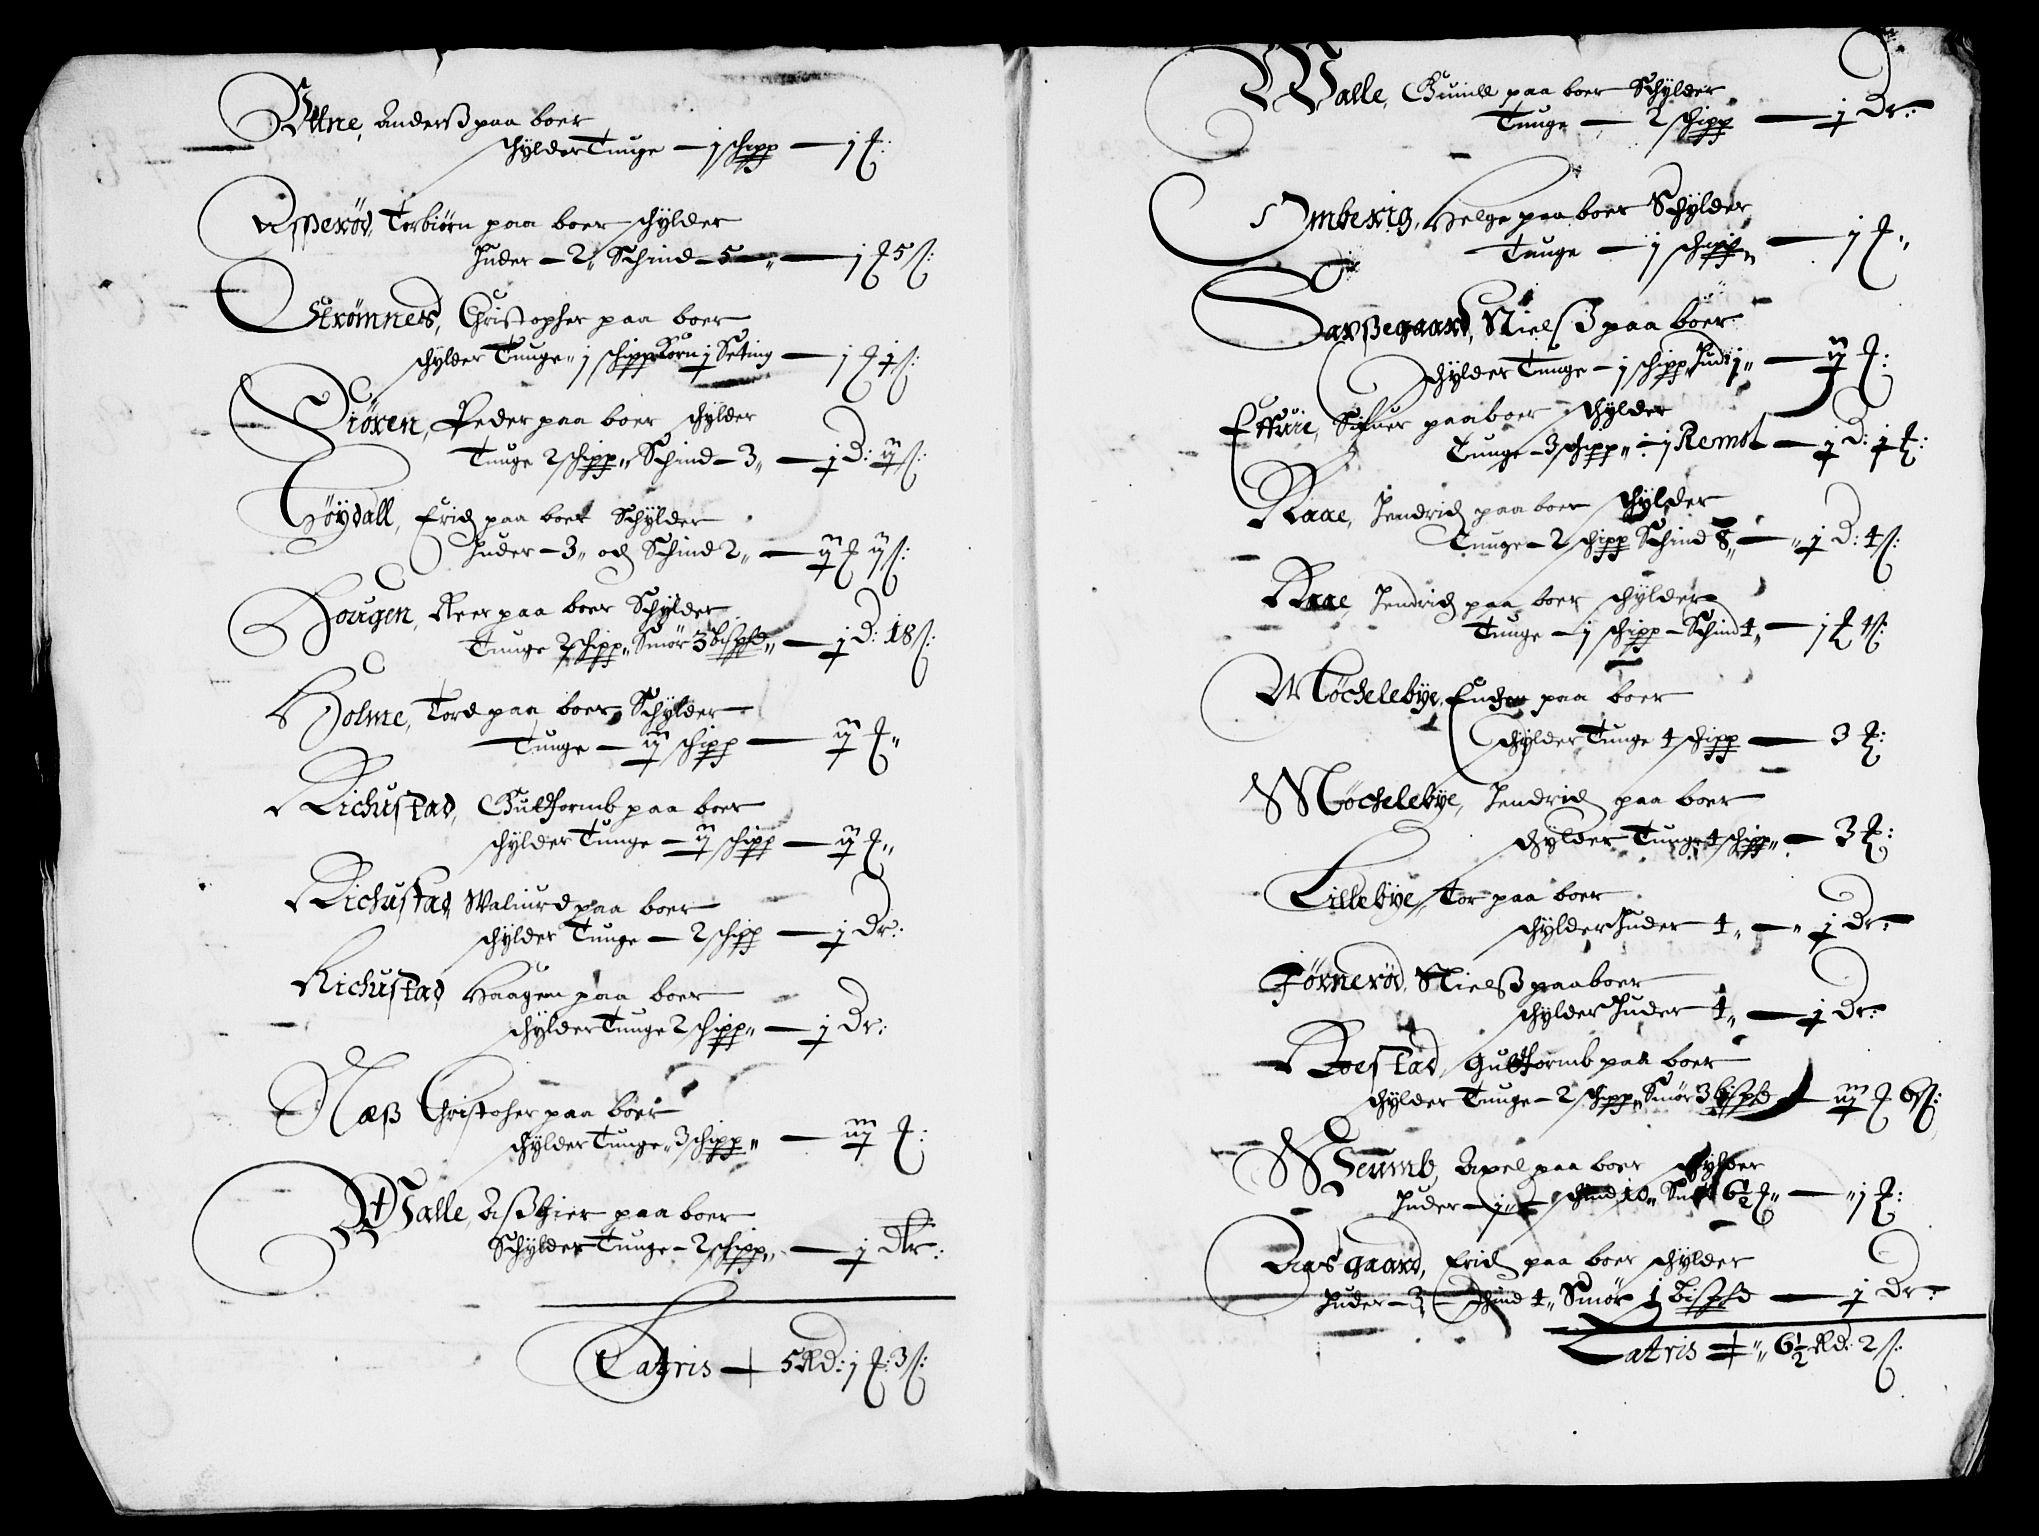 Ettne, Anderß paa boer
schylder Tunge — j schipp — j £:
Asperöd, Torbiörn paa boer schylder
Huder — 2„ Schind — 5 — „ — j £ 5 ß:
Strömnes, Christopher paa boer
schylder Tunge „ j schipp Korn ½ Seting — j £ ½ ß:
Siören, Peder paa boer schylder
Tunge 2 schipp „ Schind — 3„ — ½ D: ij ß:
Höydall, Erich paa boer Schylder
Huder — 3„ och Schind 2„ — ij £ ij ß:
Hougen, Reer paa boer Schylder
Tunge 2 schipp „ Smör 3 bispd „ — ½ D: 18 ß:
Holme, Tord paa boer, Schylder
Tunge — ij schipp — ij £ „
Richustad, Guttormb paa boer
schylder Tunge — ij schipp — ij £ „
Richustad, Waliurd paa boer
schylder Tunge — 2 schipp — ½ Dr:
Richustad, Haagen paa boer
schylder Tunge 2 schipp „ — ½ Dr:
Næß Christoher paa boer
schylder Tunge „ 3 schipp „ — iij £:
Walle, Aßgier paa boer
Schylder Tunge — 2 schipp „ — ½ Dr:
Latris — 5 Rd: j £: 3 ß:
Walle, Gunild paa boer Schylder
Tunge — 2 schipp — ½ Dr:
Omberig, Helge paa boer Schylder
Tunge — j schipp „ — j £ „
Saxßegaard, Nielß paa boer
schylder Tunge — j schipp „ Hud j „ — ij £:
Ettuie, Siffuer paa boer schylder
Tunge — 3 schipp „ j Remol — ½ D: ½ £:
Raae, Jendrich paa boer schylder
Tunge — 2 schipp Schind 8„ — „ ½ D: 4 ß:
Raae, Jendrich paa boer schylder
Tunge — j schipp — Schind 4„ — j £ 4 ß:
Möchelebye, paa boer
schylder Tunge 4 schipp — 3 £:
Möchelebye, Jendrich paa boer
schylder Tunge 4 schipp „ — 3 £:
Lillebye, Tor paa boer
schylder Huder 4„ — „ ½ Dr:
Törneröd, Nielß paa boer
schylder Huder 4„ — ½ Dr:
Roestad, Guttormb paa boer
schylder Tunge — 2 schipp „ Smör 3 bispd — iij £ 6 ß:
Weumb, Axel paa boer schylder
Huder — j „ schind 10„ 6½ £ „ — „ j £:
Aasgaard, Erich paa boer schylder
Huder — 3, — schind 4„ Smör 1 Bispd — ½ Dr:
Latris „ 6½ Rd: 2 ß: